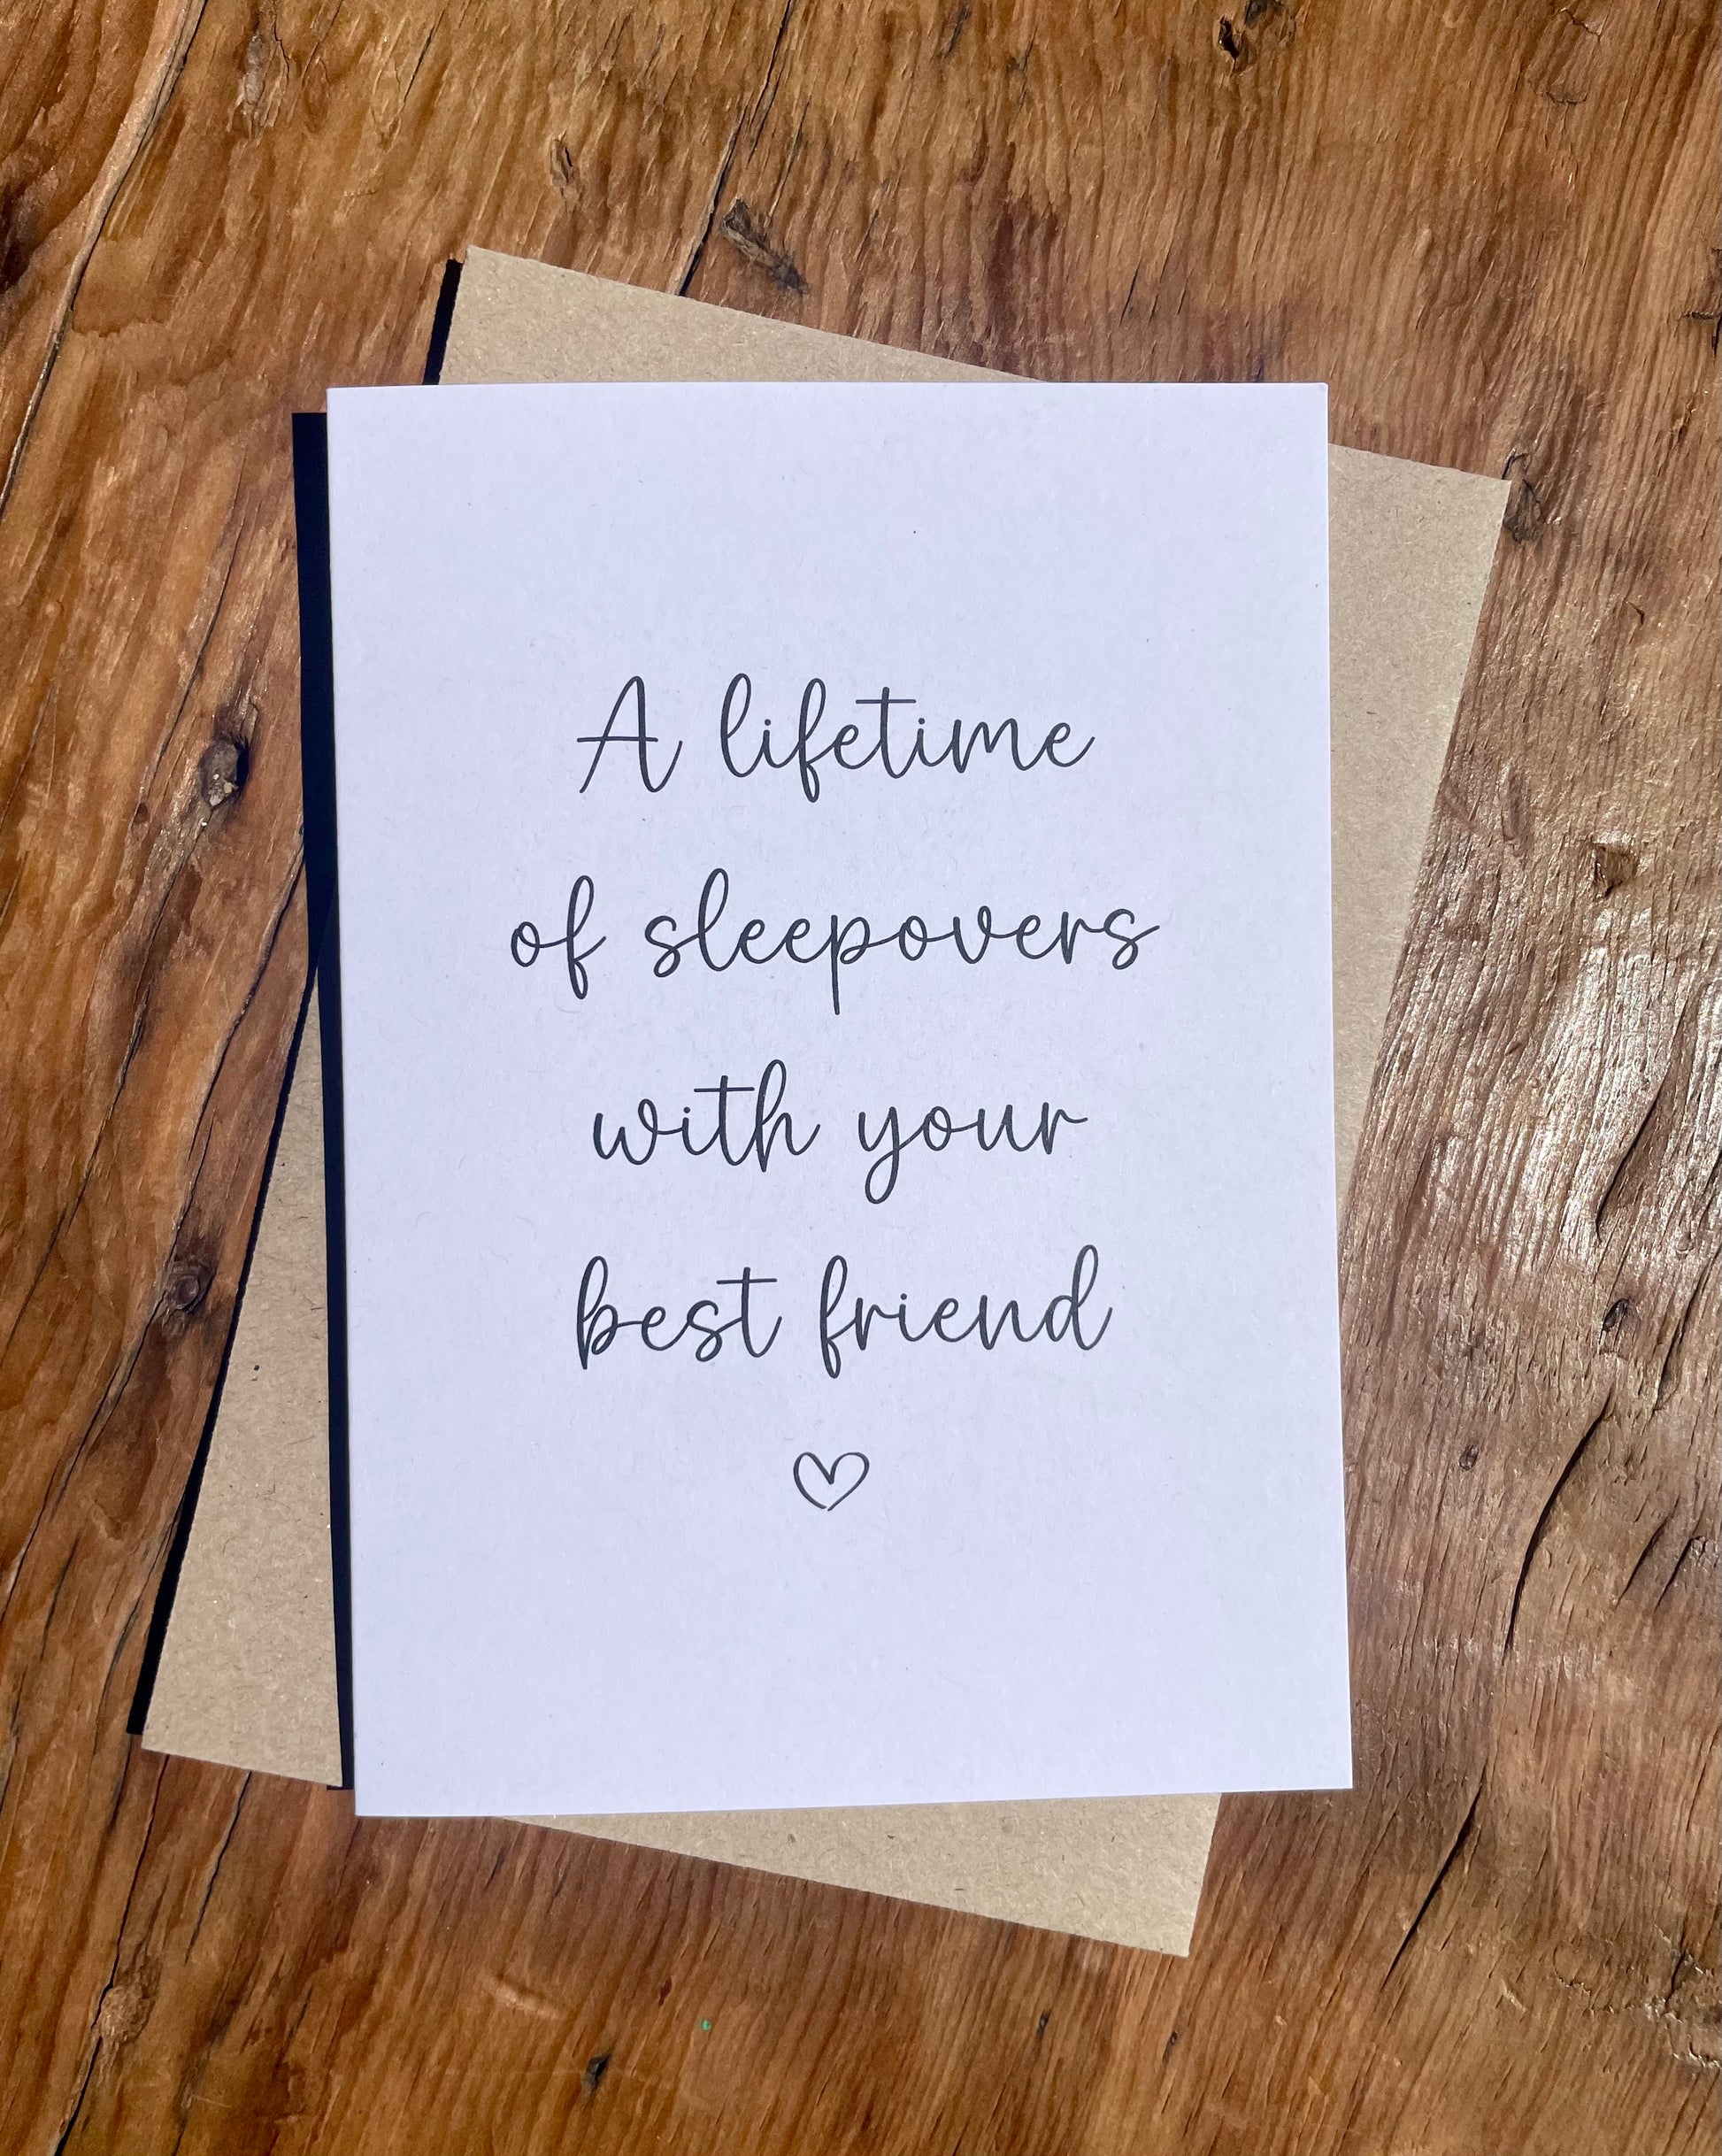 A lifetime
of sleepovers
with your
best friend